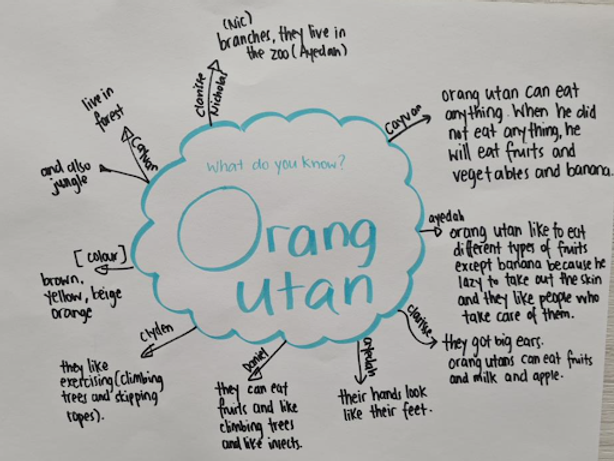 (Nic)
branches, they live in
the zoo (Ayedah)
Clarise
Nicholas
live in
forest
Cayvan
and also
jungle
Cayvan
orang utan can eat
anything. When he did
not eat anything, he
will eat fruits and
vegetables and banana.
What do you know?
Orang
utan
ayedah
orang utan like to eat
different types of fruits
except banana because he
lazy to take out the skin
and they like people who
take care of them.
[colour]
brown,
yellow, beige
orange
clarise
they got big ears.
orang utans can eat fruits
and milk and apple.
Clyden
they like
exercising (climbing
trees and skipping
ropes).
Daniel
they can eat
fruits and like
climbing trees
and like insects.
ayedah
their hands look
like their feet.